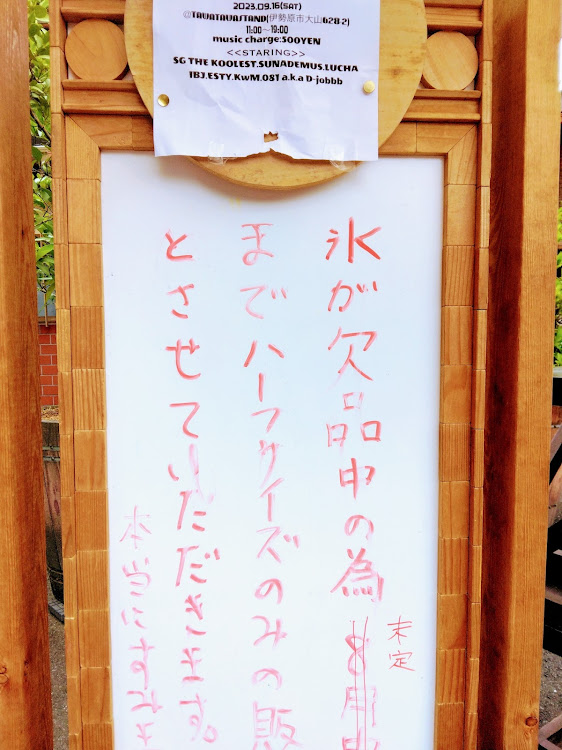 2023.09.16(SAT)
@TAVATAVASTAND(伊勢原市大山628-2)
11:00~19:00
music charge:500YEN
<<STARING>>
SG THE KOOLEST.SUNADEMUS.LUCHA
IBJ.ESTY.KwM.081 a.k.a D-jobbb
氷が欠品中の為8月中
未定
までハーフサイズのみの販
とさせていただきます。
本当にすみま